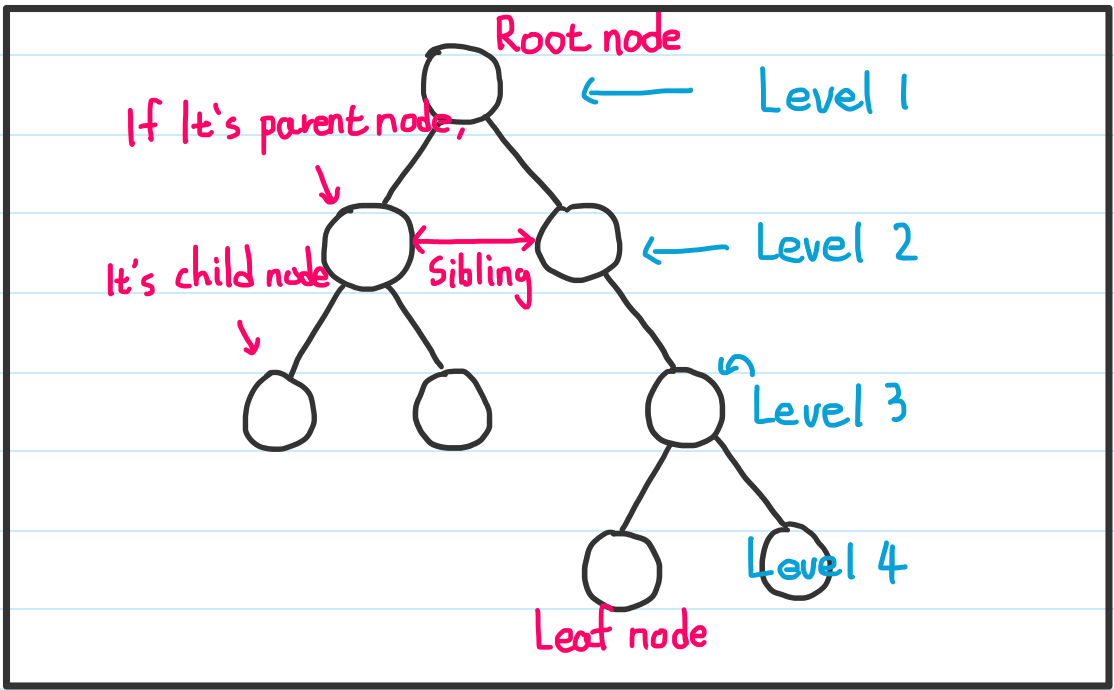 Root node
Level 1
If It's parent node,
Level 2
It's child node
Sibling
Level 3
Level 4
Leaf node